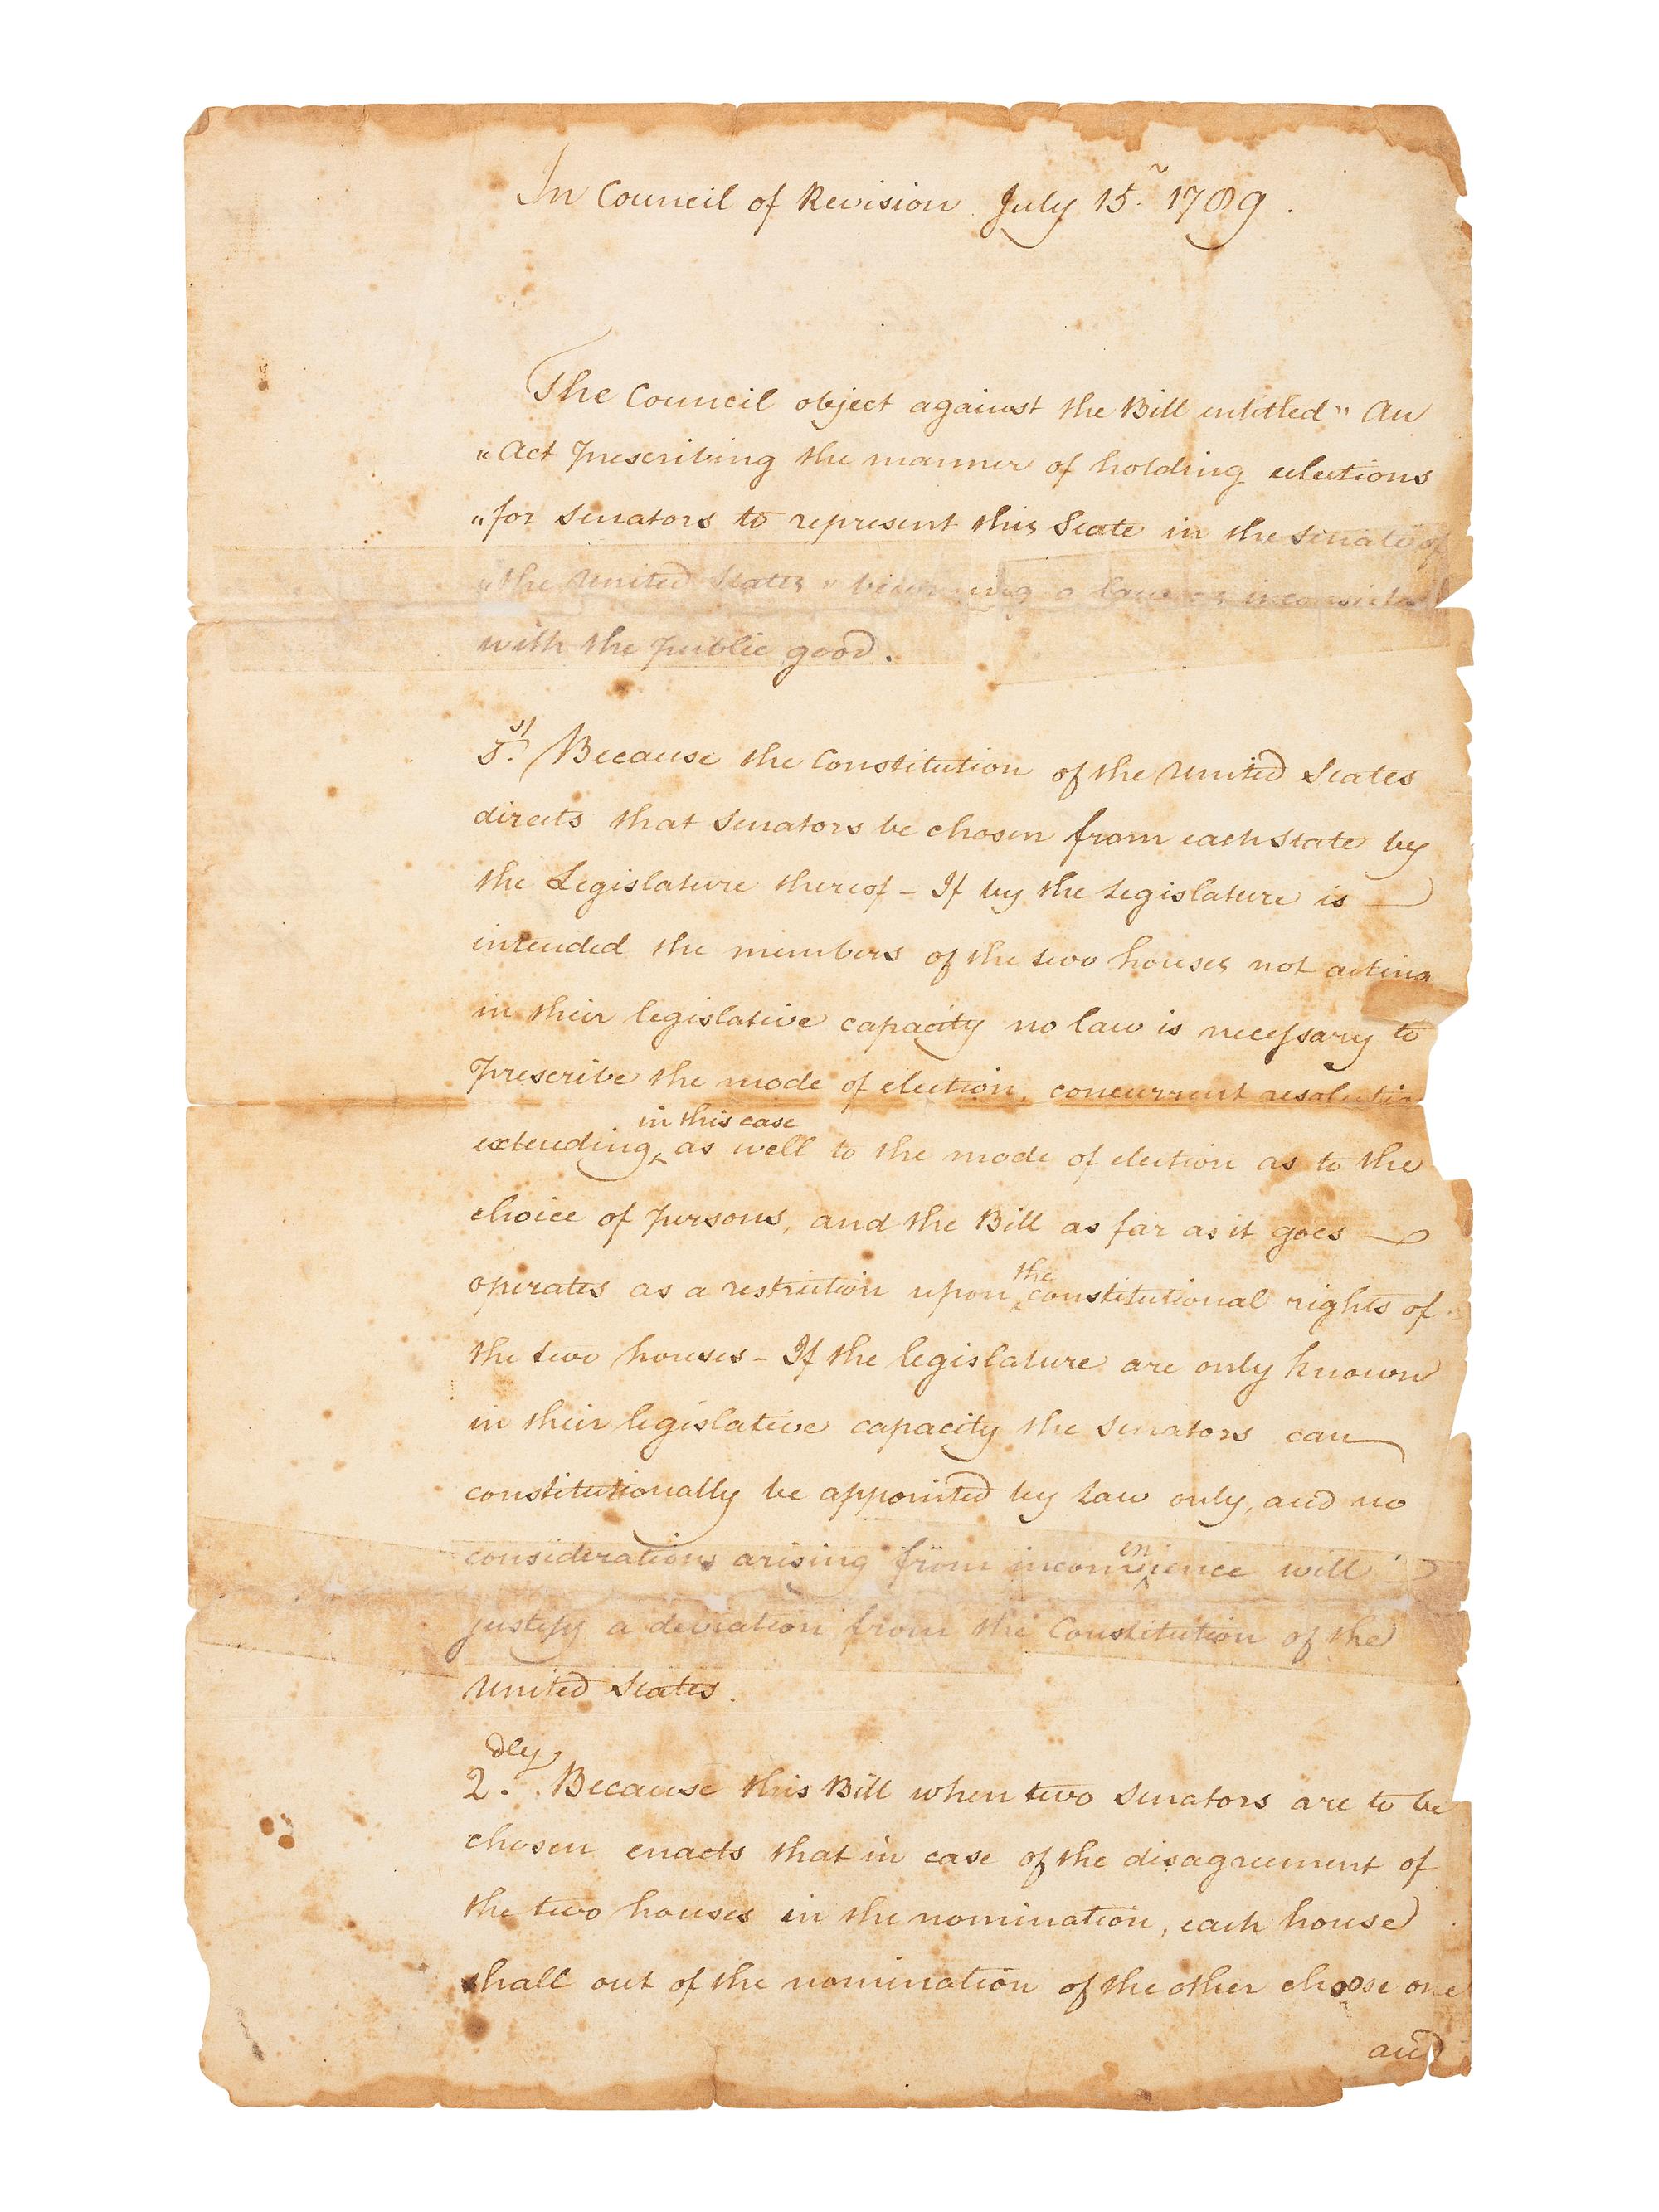 In Council of Revision July 15. 1789.
The Council object against the Bill entitled " An
" Act prescribing the manner of holding elections
" for Senators to represent this State in the Senate of
" the United States " becoming a law as inconsistent
with the public good.
1st. Because the Constitution of the United States
directs that Senators be chosen from each State by
the Legislature thereof - If by the Legislature is
intended the members of the two houses not acting
in their legislative capacity no law is necessary to
prescribe the mode of election, concurrent resolution
in this case
extending ‸ as well to the mode of election as to the
choice of persons, and the Bill as far as it goes
the
operates as a restriction upon ‸ constitutional rights of
the two houses - If the legislature are only known
in their legislative capacity the Senators can
constitutionally be appointed by Law only, and no
en
considerations arising from inconv‸ience will
justify a deviation from the Constitution of the
United States.
2.dly Because this Bill when two Senators are to be
chosen enacts that in case of the disagreement of
the two houses in the nomination, each house
shall out of the nomination of the other choose one
and